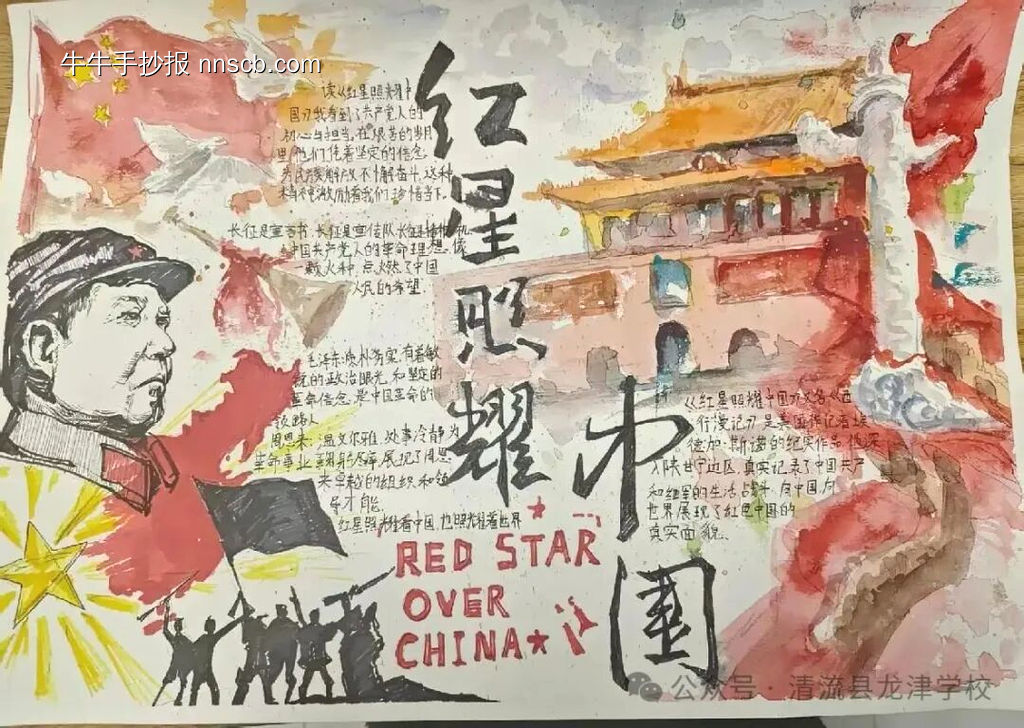 牛牛手抄报 nnscb.com
红星照耀中国
读《红星照耀中
国》我看到了共产党人的
初心与担当,在艰苦的岁月
里,他们凭着坚定的信念
为民族解放不懈奋斗,这种
精神激励着我们珍惜当下。
长征是宣言书,长征是宣传队,长征是播种机
中国共产党人的革命理想,像
一颗火种,点燃了中国
人民的希望
毛泽东:质朴务实,有着敏
锐的政治眼光和坚定的
革命信念,是中国革命的
领路人
周恩来:温文尔雅,处事冷静,为
革命事业鞠躬尽瘁,展现了周恩
来卓越的组织和领
导才能。
红星照耀着中国,也照耀着世界
《红星照耀中国》又名《西
行漫记》是美国记者埃
德加·斯诺的纪实作品,他深
入陕甘宁边区,真实记录了中国共产
和红军的生活与战斗,向中国,向
世界展现了红色中国的
真实面貌。
RED STAR
OVER
CHINA
公众号·清流县龙津学校